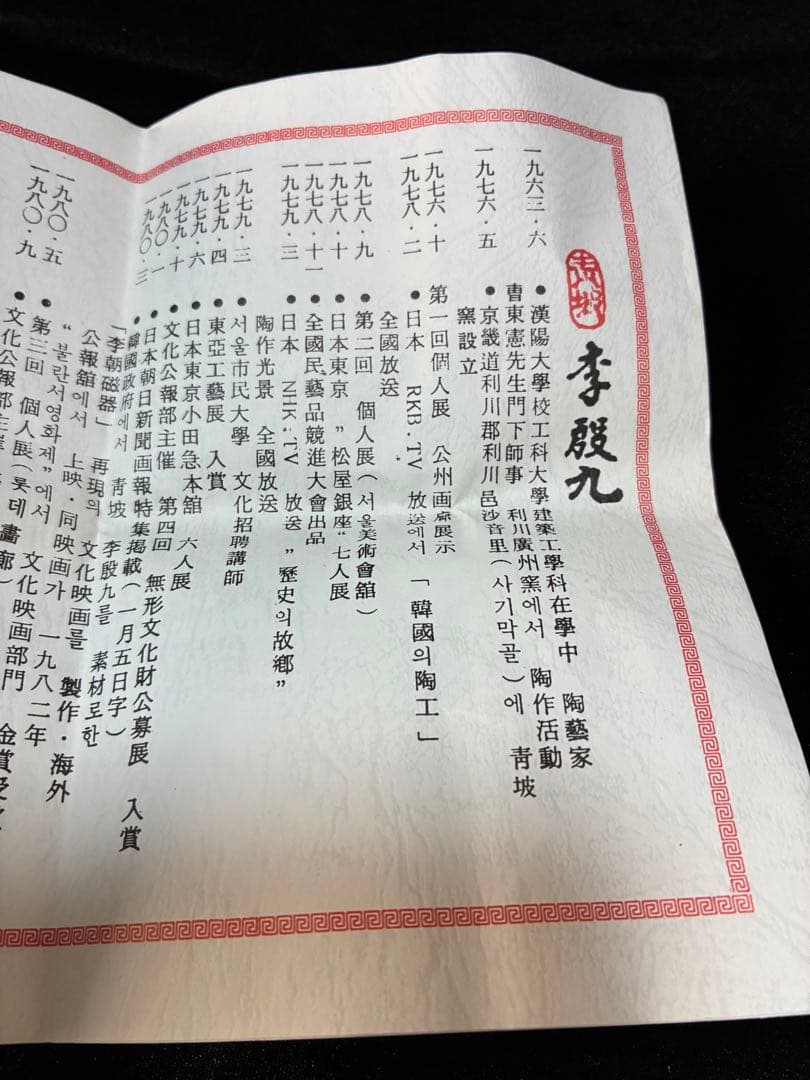 李殷九
一九六三・六 ●漢陽大學校工科大學建築工學科在學中 陶藝家
曺東憲先生門下師事 利川廣州窯에서 陶作活動
一九七六・五 ●京畿道利川郡利川邑沙音里(사기막골)에 靑坡
窯設立
一九七六・十 第一回個人展 公州画廊展示
一九七八・二 ●日本 RKB.TV 放送에서 「韓國의陶工」
全國放送
一九七八・九 ●第二回 個人展(서울美術會舘)
一九七八・十 ●日本東京 "松屋銀座"七人展
一九七八・十一 ●全國民藝品競進大會出品
一九七九・三 ●日本 NHK-TV 放送 "歷史의故鄕"
陶作光景 全國放送
一九七九・三 ●서울市民大學 文化招聘講師
一九七九・四 ●東亞工藝展 入賞
一九七九・六 日本東京小田急本舘 六人展
一九七九・十 ●文化公報部主催 第四回 無形文化財公募展 入賞
一九八〇・一 ●日本朝日新聞画報特集掲載(一月五日字)
一九八〇・三 ●韓國政府에서 靑坡 李殷九를 素材로한
「李朝磁器」 再現의 文化映画를 製作・海外
公報舘에서 上映・同映画가 一九八二年
"불란서영화제"에서 文化映画部門 金賞受
一九八〇・五 ●第三回 個人展(롯데畫廊)
一九八〇・九 ●文化公報部主催